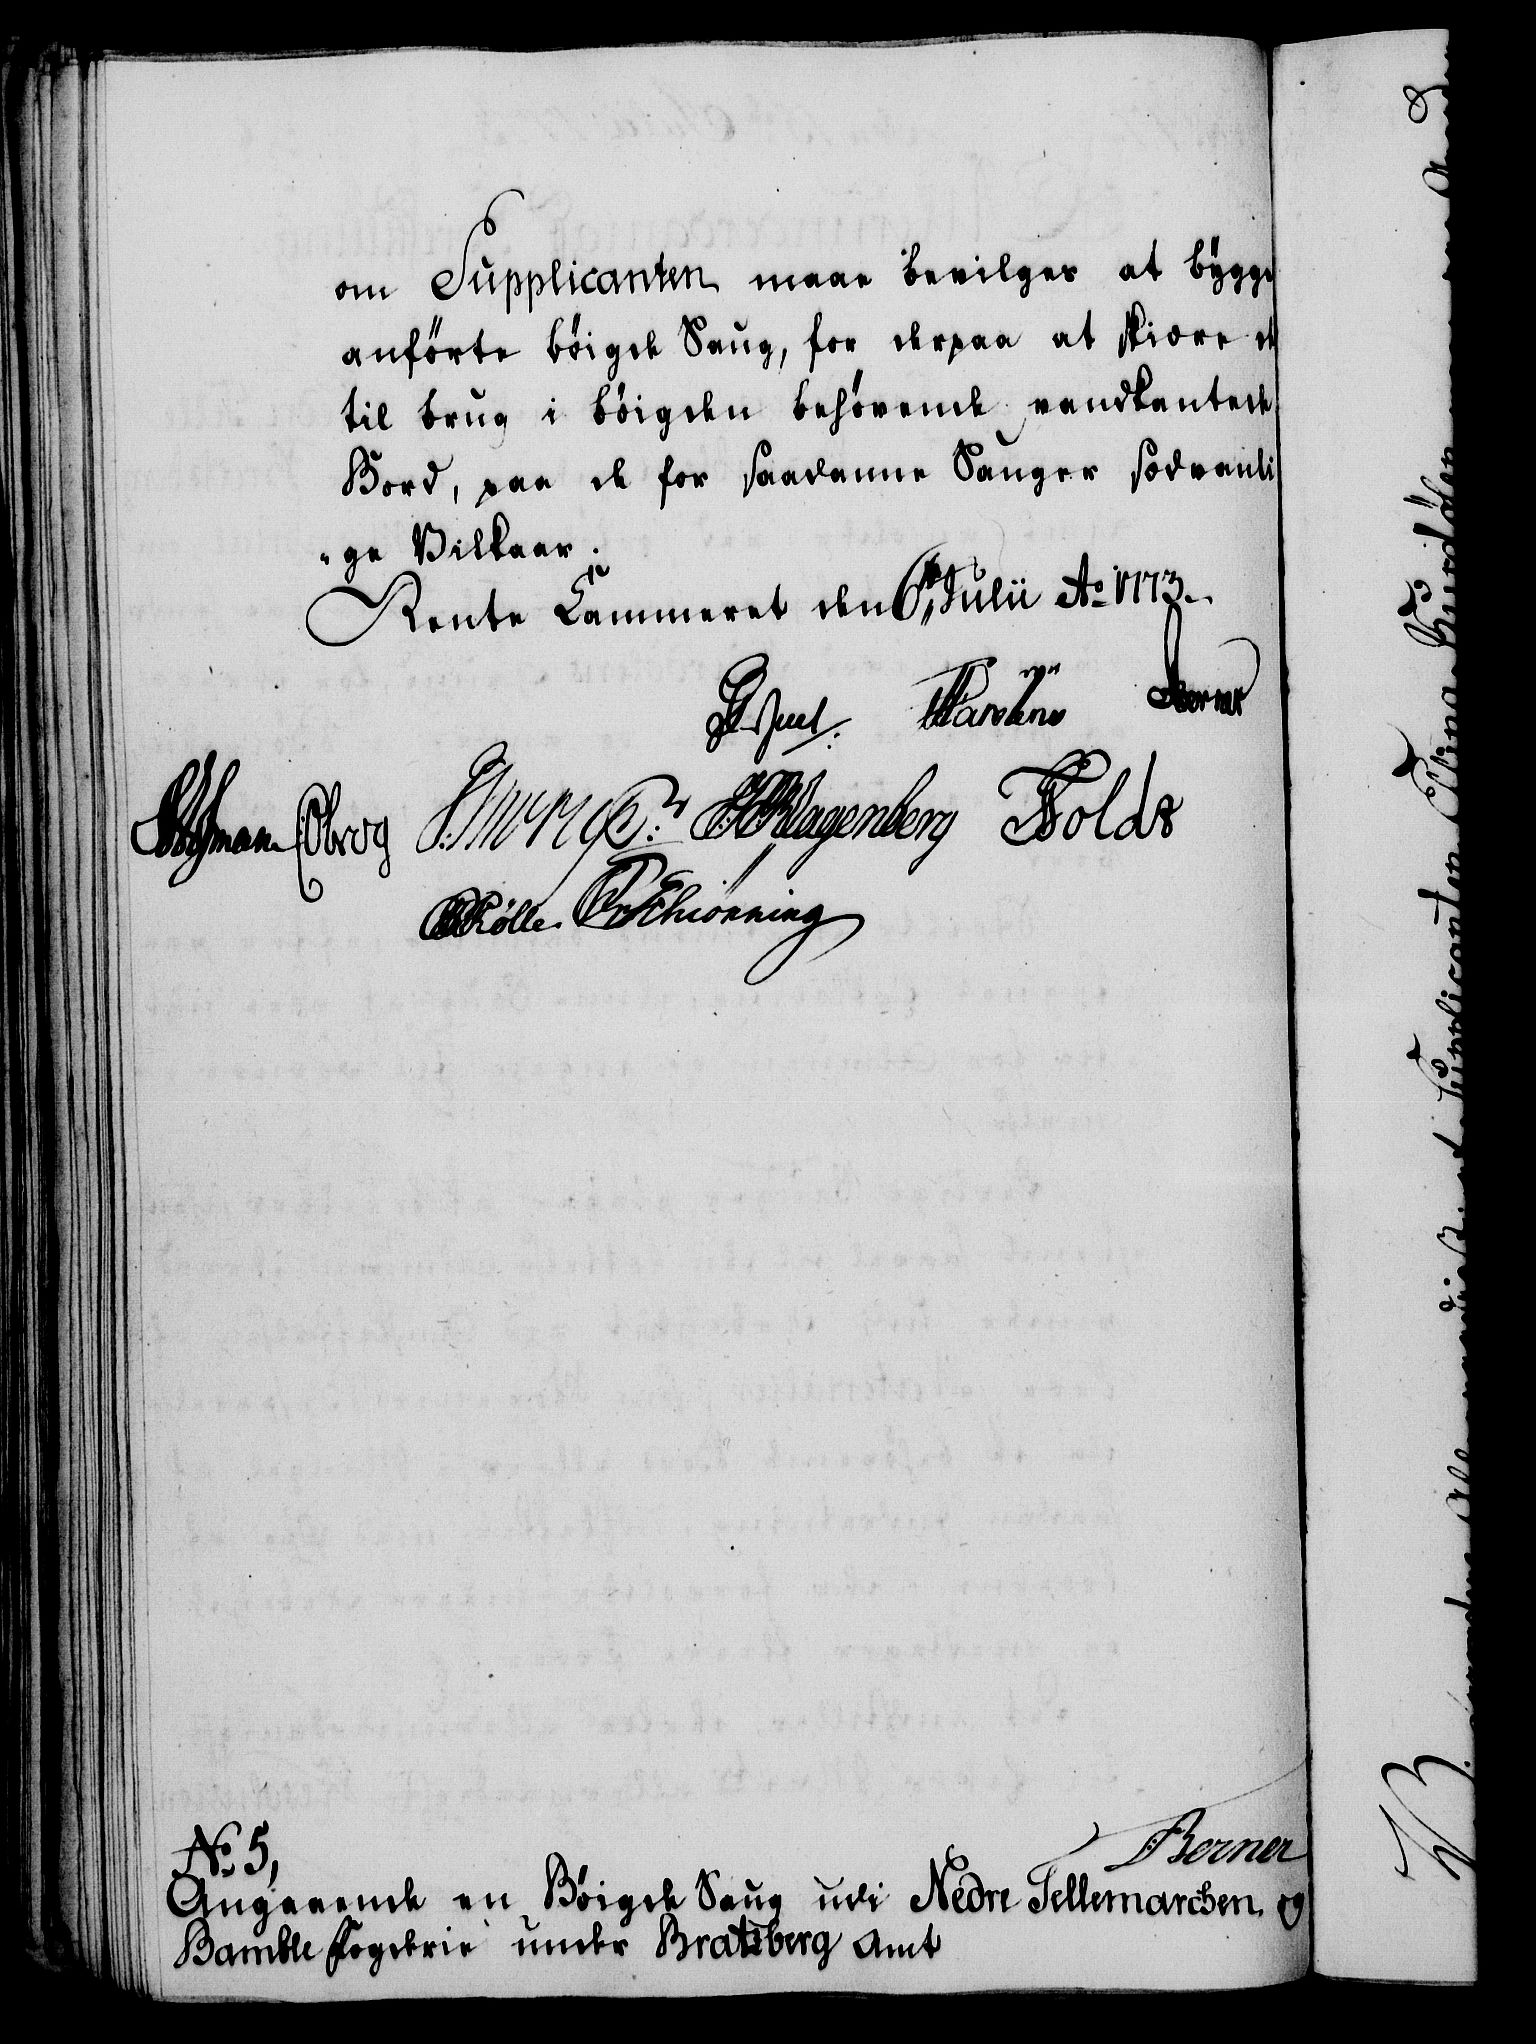 om Supplicanten maae bevilges at bygge
anförte böigde Saug, for derpaa at skiære d
til brug i böigden behövende vandkantede
Bord, paa de for saadanne Sauger sædvanli
-ge Vilkaar.
Rente Cammeret den 6te Julii Ao 1773.
Juel. Berner
Obrog Klagenberg Holdt
Rölle. Schiönning
Berner
No 5,
Angaaende en Böigde Saug udi Nedre Tellemarchen og
Bamble Fogderie under Bratsberg Amt
Supplicanten